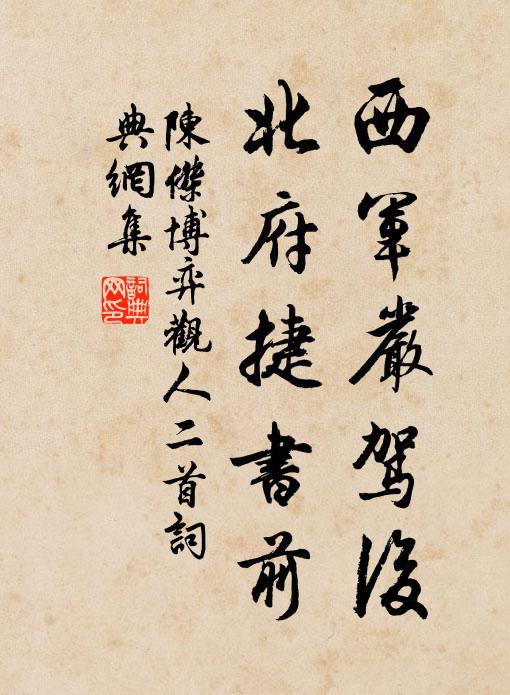 西軍嚴駕後
北府捷書前
陳傑博弈觀人二首詞
典網集
詞典
网印